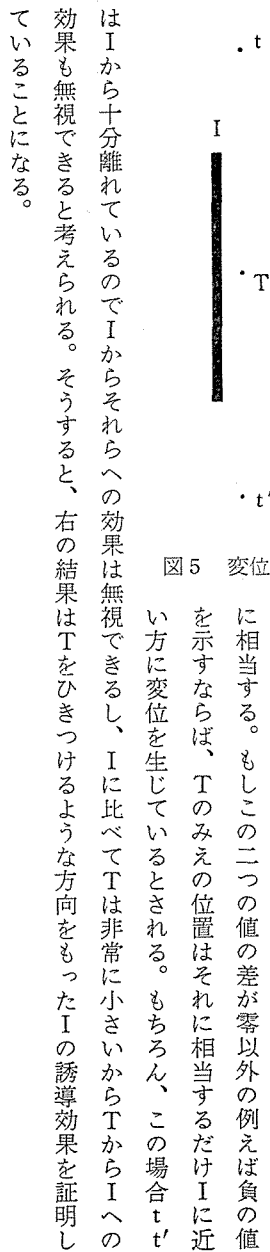 t
I
T
t′
図5　変位
に相当する。もしこの二つの値の差が零以外の例えば負の値
を示すならば、Tのみえの位置はそれに相当するだけIに近
い方に変位を生じているとされる。もちろん、この場合t t′
はIから十分離れているのでIからそれらへの効果は無視できるし、Iに比べてTは非常に小さいからTからIへの
効果も無視できると考えられる。そうすると、右の結果はTをひきつけるような方向をもったIの誘導効果を証明し
ていることになる。